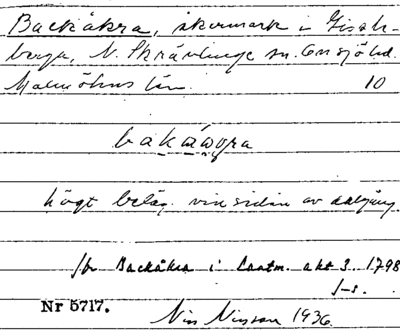 Backåkra, åkermark i Gissle-
berga, N. Skrävlinge sn. Onsjö hd.
Malmöhus län. 10
bakåwra
högt beläg. vid sidan av dalgång.
Jfr Backåkra i Lantm. akt 3. 1798
J-s.
Nr 5717. Nils Nilsson 1936.